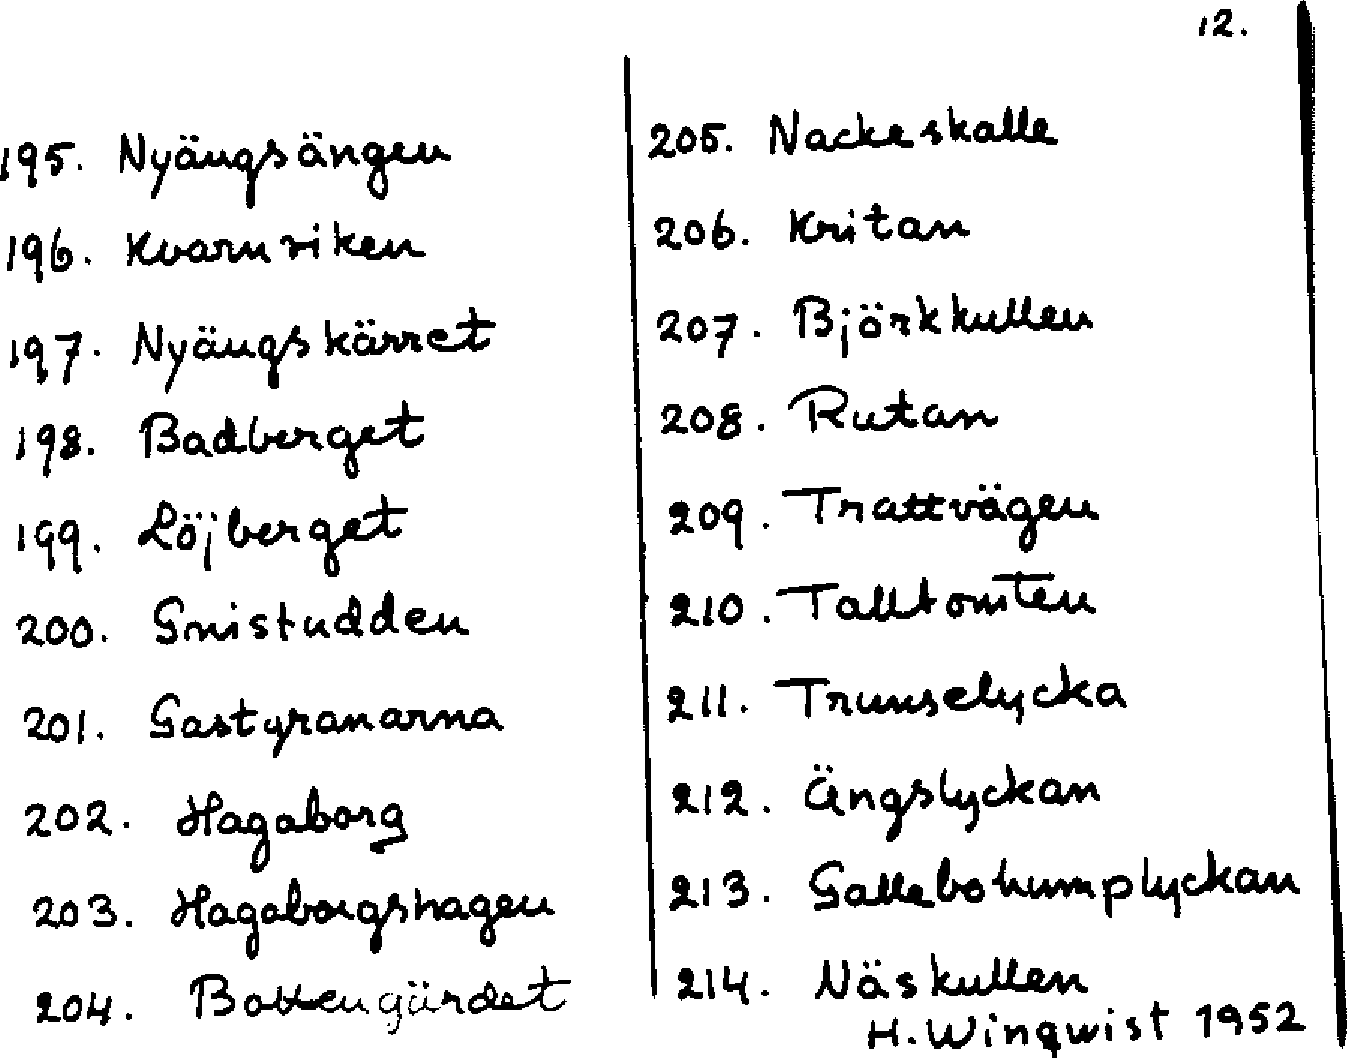 12.
195. Nyängsängen
196. Kvarnviken
197. Nyängskärret
198. Badberget
199. Löjberget
200. Gnistudden
201. Gastgranarna
202. Hagaborg
203. Hagaborgshagen
204. Bottengärdet
205. Nackeskalle
206. Kritan
207. Björkkullen
208. Rutan
209. Trattvägen
210. Talltomten
211. Trunselycka
212. Ängslyckan
213. Gallebohumplyckan
214. Näskullen
H. Winqwist 1952